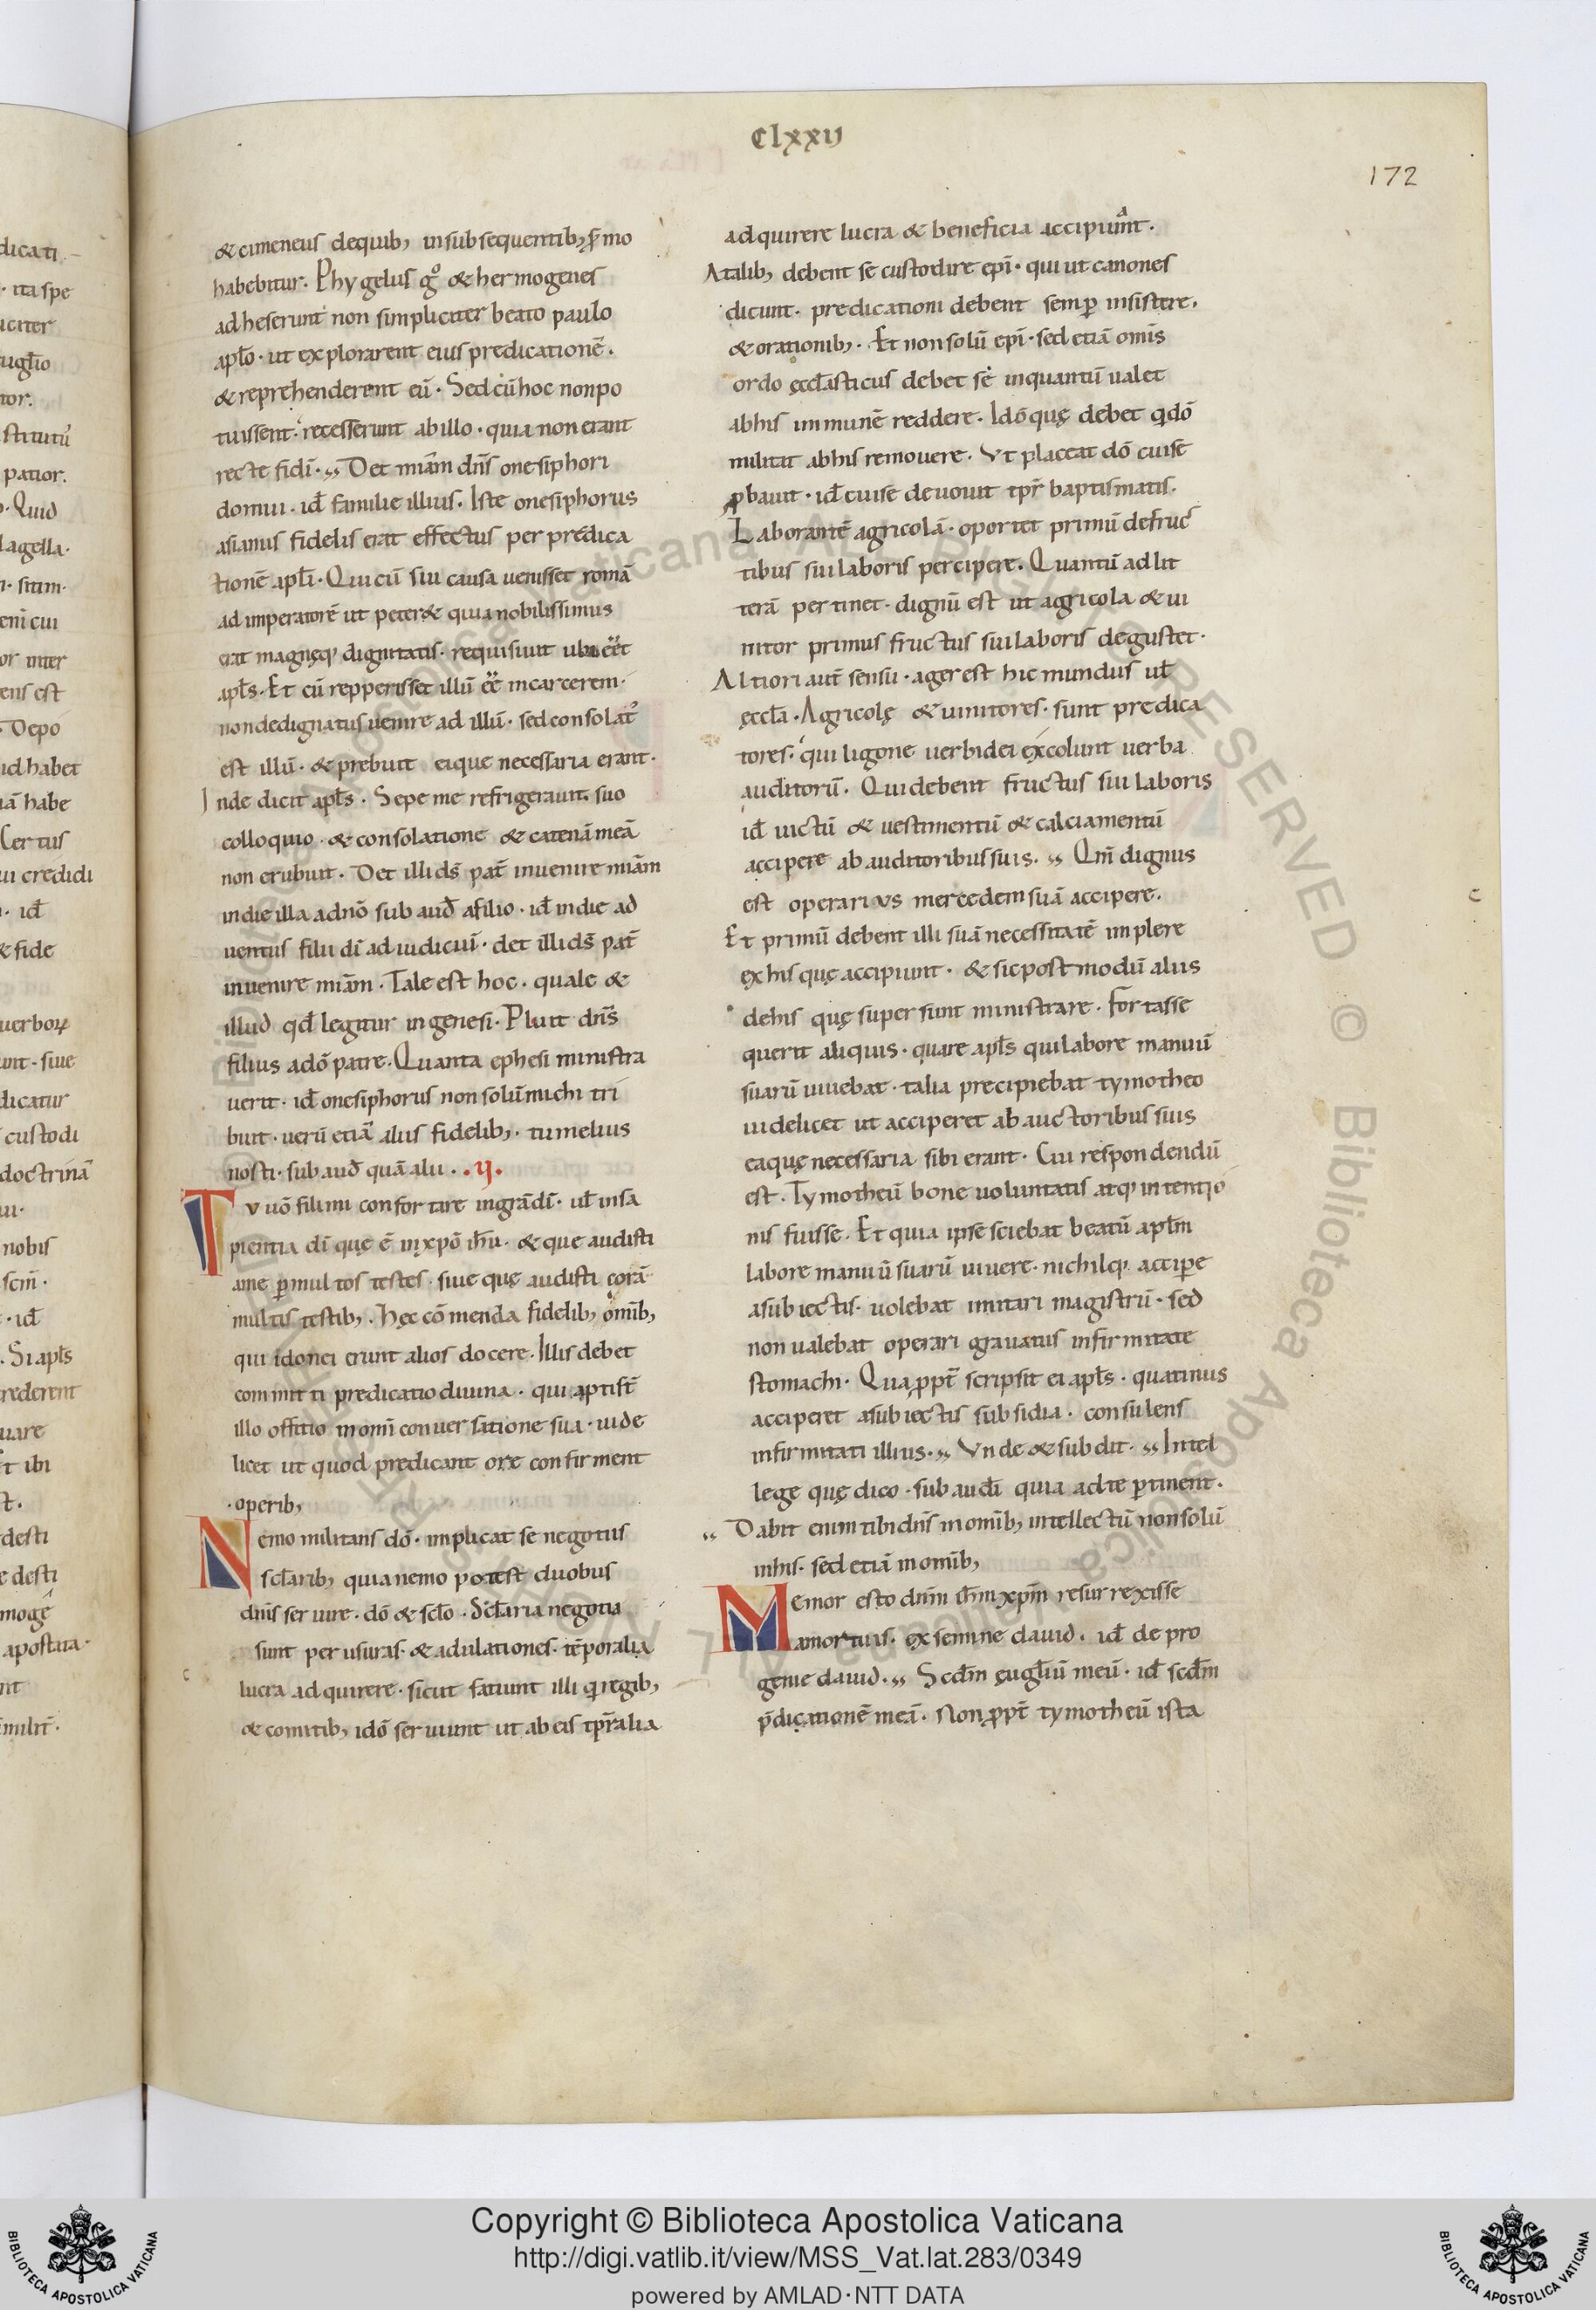 Clxxij
172
dicati
· ita spe
iciter
tor.
patior.
· Quid
lagella·
enī cui
or inter
ens est
Depo
id habet
iā habe
Certus
ui credidi
· id̄
& fide
uerboꝝ
unt· siue
dicatur
custodi
doctrinā
nobis
· id̄
· Si apl̄s
rederent
uare
t ibi
desti
e desti
mogē
apostata·
& cimeneus de quib; in subsequentib; s̄mo
habebitur. Phygelus gͦ & hermogenes
adheserunt non simpliciter beato paulo
apl̄o· ut explorarent eius predicationē.
& reprehenderent eū. Sed cū hoc non po
tuissent· recesserunt ab illo· quia non erant
recte fidī· Det miām dn̄s onesiphori
domui· id̄ familie illius. Iste onesiphorus
asianus fidelis erat effectus per predica
tionē apl̄i. Qui cū sui causa uenisset romā
ad imperatorē ut peter& quia nobilissimus
erat magnęq; dignitatis· requisiuit ubi eēt
apl̄s. Et cū repperisset illū eē in carcerem·
non dedignatus uenire ad illū· sed consolat᷒
est illū· & prebuit eique necessaria erant·
Inde dicit apl̄s. Sepe me refrigerauit suo
colloquio· & consolatione & catenā meā
non erubuit. Det illi ds̄ pat̄ inuenire miām
in die illa a dn̄o sub aud̄ a filio· id̄ in die ad
uentus filii dī ad iudiciuī· det illi ds̄ pat̄
inuenire miām. Tale est hoc. quale &
illud qd̄ legitur in genesi. Pluit dn̄s
filius a dō patre. Quanta ephesi ministra
uerit· id̄ onesiphorus non solū michi tri
buit· uerū etiā aliis fidelib;. tu melius
nosti· sub aud̄ quā alii. .ij.
Tv uō fili mi confortare in grā dī· ul̄ in sa
pientia dī quę ē in xp̄o ih̄u· & que audisti
a me ꝑ multos testes· siue quę audisti corā
multis testib;. hęc cōmenda fidelib; om̄ib;
qui idonei erunt alios docere. Illis debet
committi predicatio diuina· qui apti st̄
illo offitio in om̄i conuersatione sua· uide
licet ut quod predicant ore confirment
·operib;
Nemo militans dō· implicat se negotiis
scl̄arib; quia nemo potest duobus
dn̄is seruire· dō & scl̄o. Scl̄aria negotia
sunt per usuras· & adulationes· tēporalia
lucra adquirere· sicut fatiunt illi q̄ regib;
& comitib; idō seruiunt ut ab eis tp̄ralia
adquirere lucra & beneficia accipiunt.
A talib; debent se custodire ep̄i· qui ut canones
dicunt· predicationi debent semꝑ insistere.
& orationib;. Et non solū ep̄i· sed etiā om̄is
ordo ęccl̄asticus debet se inquantū ualet
ab his immunē reddere. Idō quę debet q̄ dō
militat ab his remouere. Vt placeat dō cui se
ꝓbauit· id̄ cui se deuouit tp̄r baptismatis.
Laborantē agricolā· oportet primū de fruc
tibus sui laboris percipere. Quantū ad lit
terā pertinet· dignū est ut agricola & ui
nitor primus fructus sui laboris degustet·
Altiori aut̄ sensu· ager est hic mundus ul̄
ęccl̄a. Agricolę & uinitores· sunt predica
tores· qui ligone uerbi dei excolunt uerba
auditorū. Qui debent fructus sui laboris
id̄ uictū & uestimentū & calciamentū
accipere ab auditoribus suis. Qm̄ dignus
est operarius mercedem suā accipere.
Et primū debent illi suā necessitatē implere
ex his quę accipiunt· & sic postmodū aliis
de his quę supersunt ministrare. Fortasse
querit aliquis· quare apl̄s qui labore manuū
suarū uiuebat· talia precipiebat tymotheo
uidelicet ut acciperet ab auctoribus suis
eaquę necessaria sibi erant. Cui respondendū
est. Tymotheū bone uoluntatis atq; intentio
nis fuisse. Et quia ipse sciebat beatū apl̄m
labore manuū suarū uiuere· nichilq; accipe
a subiectis· uolebat imitari magistrū· sed
non ualebat operari grauatus infirmitate
stomachi. Qua ꝓpt̄ scripsit ei apl̄s· quatinus
acciperet a subiectis subsidia· consulens
infirmitati illius. Vnde & subdit· Intel
lege quę dico· sub audī quia ad te ꝑtinent.
Dabit enim tibi dn̄s in om̄ib; intellectū non solū
in his· sed etiā in omib;
Memor esto dn̄m ih̄m xp̄m resurrexisse
a mortuis· ex semine dauid. id̄ de pro
genie dauid. Scd̄m eugl̄iū meū· id̄ scd̄m
p̄dicationē meā. Non ꝓpt̄ tymotheū ista
c
c
Copyright © Biblioteca Apostolica Vaticana
http://digi.vatlib.it/view/MSS_Vat.lat.283/0349
powered by AMLAD·NTT DATA
BIBLIOTECA APOSTOLICA VATICANA
BIBLIOTECA APOSTOLICA VATICANA